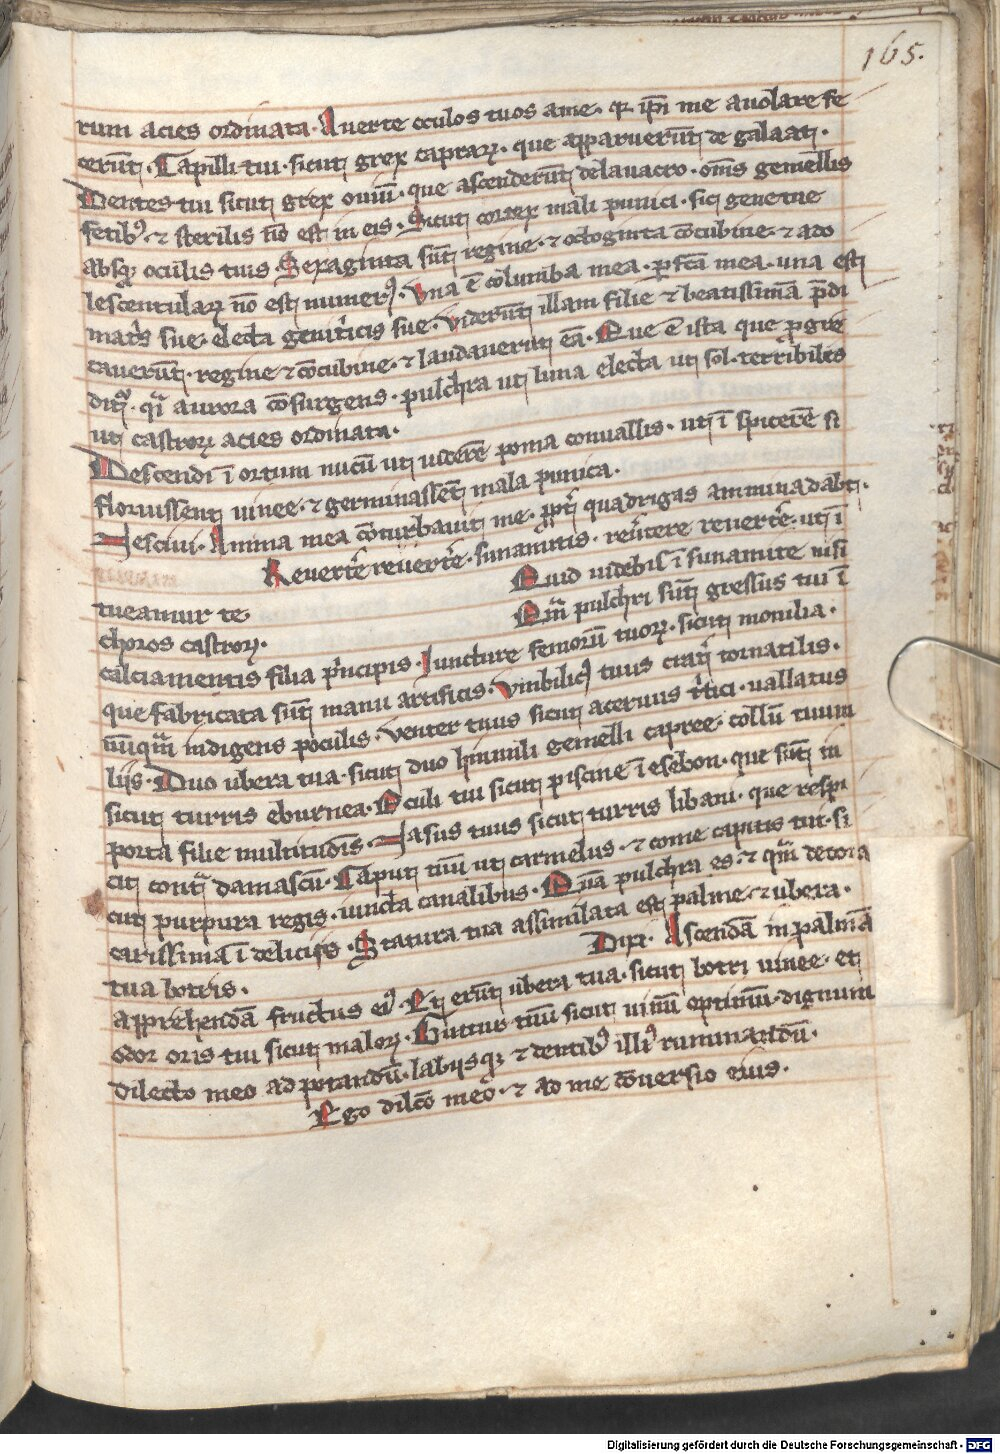 165.
rum acies ordinata. Auerte oculos tuos a me. qr. ipi me auolare fe
cerūt. Capilli tui. sicut grex caprarꝝ. que apparuerūt de galaat.
Dentes tui sicut grex ouiū. que ascenderūt de lauacro. om̄s gemellis
fetibꝰ. ⁊ sterilis nō est in eis. Sicut cortex mali punici. sic gene tue
absqꝫ oculis tuis. Sexaginta sūt regine. ⁊ octoginta cōcubine. ⁊ ado
lescentularꝝ nō est numerꝰ. Vna ē columba mea. ꝑfcā mea. una est
mat̃s sue. electa genit̃cis sue. Viderūt illam filie ⁊ beatissimā p̄di
cauerūt. regine ⁊ cōcubine. ⁊ laudauerūt eā. Que ē ista que ꝓgre
dit᷑. q̄ aurora cōsurgens. pulchra ut luna electa ut sol. terribilis
ut castrorꝝ acies ordinata.
Descendi ī ortum nucū ut uiderē poma conuallis. ut ī spicerē si
floruissent uinee. ⁊ germinassēt mala punica.
Nesciui. Anima mea cōturbauit me. ꝓpt̃ quadrigas aminadab.
Reuert̃e reuert̃e. sunamitis. reu̾tere reuert̃e. ut ī
tueamur te. Quid uidebis ī sunamite nisi
choros castrorꝝ. Qm̄ pulchri sūt gressus tui ī
calciamentis filia p̃ncipis. Iuncture femorū tuorꝝ. sicut monilia.
que fabricata sūt manu artificis. Vmbilicꝰ tuus crat̃ tornatilis.
nūqm̄ indigens poculis. Venter tuus sicut aceruus t̃tici. uallatus
liis. Duo ubera tua. sicut duo hinnuli gemelli capree. collū tuum
sicut turris eburnea. Oculi tui sicut piscine ī esebon. que sūt in
porta filie multitudīs. Nasus tuus sicut turris libani. que respi
cit cont̃ damascū. Caput tuū ut carmelus. ⁊ come capitis tui. si
cut purpura regis. iuncta canalibus. Quā pulchra es. ⁊ qm̄ decora
carissima ī deliciis. Statura tua assimilata est palme. ⁊ ubera.
tua botris. Dixi. Ascendā in palmā
apprehendā fructus eiꝰ. Et erūt ubera tua. sicut botri uinee. et
odor oris tui sicut malorꝝ. Guttur tuū sicut uinū optimū. dignum
dilecto meo ad potandū. labiisqꝫ ⁊ dentibꝰ illiꝰ ruminandū.
Ego dilc̄o meo. ⁊ ad me cōuersio eius.
Digitalisierung gefördert durch die Deutsche Forschungsgemeinschaft - DFG